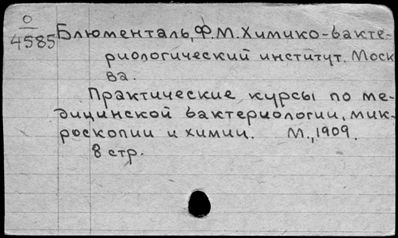 0
4585
Блюменталь, Ф.М. Химико-бакте-
риологический институт. Моск
ва.
Практические курсы по ме-
дицинской бактериологии, мик-
роскопии и химии. М., 1909.
8 стр.